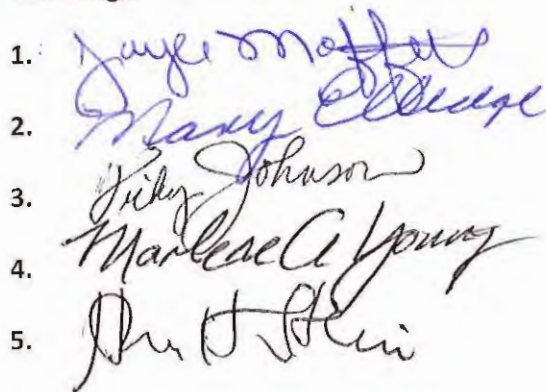 1. Joyce Moffett
2. Mary Elledge
3. Vicky Johnson
4. Marlene A Young
5. H Stein